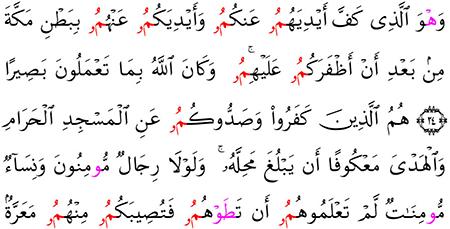 وَهْوَ ٱلَّذِى كَفَّ أَيْدِيَهُمُۥ عَنكُمُۥ وَأَيْدِيَكُمُۥ عَنْهُمُۥ بِبَطْنِ مَكَّةَ
مِنۢ بَعْدِ أَنْ أَظْفَرَكُمُۥ عَلَيْهِمُۥ ۚ وَكَانَ ٱللَّهُ بِمَا تَعْمَلُونَ بَصِيرًا
﴿٢٤﴾ هُمُ ٱلَّذِينَ كَفَرُوا۟ وَصَدُّوكُمُۥ عَنِ ٱلْمَسْجِدِ ٱلْحَرَامِ
وَٱلْهَدْىَ مَعْكُوفًا أَن يَبْلُغَ مَحِلَّهُۥ ۚ وَلَوْلَا رِجَالٌ مُّومِنُونَ وَنِسَآءٌ
مُّومِنَـٰتٌ لَّمْ تَعْلَمُوهُمُۥ أَن تَطَوْهُمُۥ فَتُصِيبَكُمُۥ مِنْهُمُۥ مَعَرَّةٌۢ